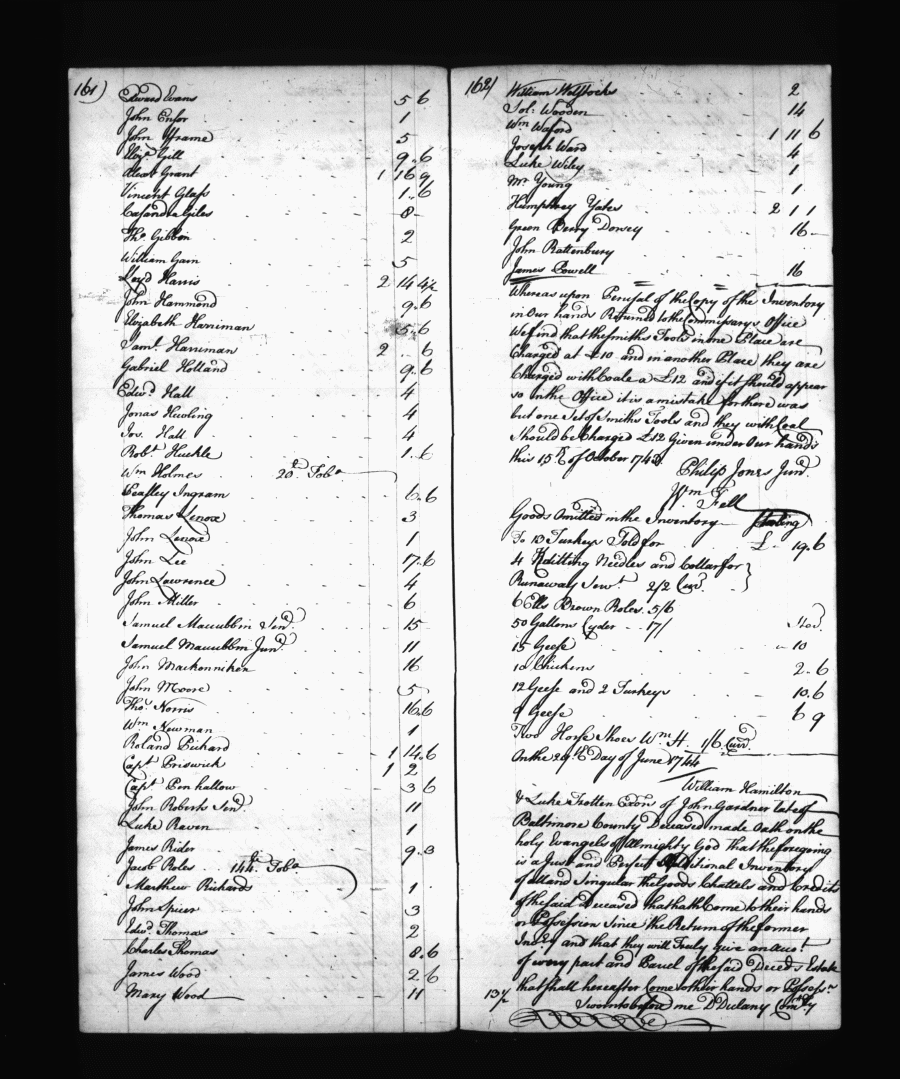 161)
Edward Evans 5 6
John Ensor 1
John Frame 5
Eliza Gill 9..6
Alexr Grant 1 16 9
Vincent Glass 1..6
Casandra Giles 8
Tho. Gibbon 2
William Gain 5
Loyd Harris 2 14 4½
John Hammond 9.6
Elizabeth Harriman 5.6
Saml. Harriman 2 .. 6
Gabriel Holland 9.6
Edwd. Hall 4
Jonas Hewling 4
Jos. Hall 4
Robt Huckle 1.6
Wm Holmes 20 lt Toba
Ingram 6.6
Thomas Lenox 3
John Lenox 1
John Lee 17.6
John Lawrence 4
John Miller 6
Samuel Maccubbin Senr. 15
Samuel Maccubbin Junr. 11
John Mackonnikin 16
John Moore 5
Thos. Norris 16.6
Wm Newman 1
Roland Pickard 1 14.6
Capt Priswick 1 2
Capt. Penhallow 3 6
John Roberts Senr. 11
Luke Raven 1
James Rider 9.3
Jacob Roles 144 lt Toba
Matthew Richards 1
John Spicer 3
Edwd. Thomas 2
Charles Thomas 8.6
James Wood 2 6
Mary Wood 11
162)
William 2
Sol: Wooden 14
Wm Waford 1 11 6
Joseph Ward 4
Luke Wiley 1
Mr Young 1
Humphrey Yates 2 1 1
Green Berry Dorsey 16
John Rattenbury
James Powell 16
Whereas upon Perusal of the Copy of the Inventory
in Our hands Returned to the Commissarys Office
We find that the smiths Tools in one Place are
Charged at £10 and in another Place they are
Charged with Coale a £12 and if it should appear
so in the Office it is a mistake for there was
but one Set of Smiths Tools and they with Coal
Should be Charged £12 Given under Our hands
this 15th of October 1743
Philip Jones Junr.
Wm. Fell
Goods Omitted in the Inventory Sterling
To 13 Turkeys Sold for £ .. 19.6
4 Knitting Needles and Collar for
Runaway Servt. 2/2 Curr.
6 Ells Brown Roles. 5/6
50 Gallons Cyder 17/
15 Geese 10
10 Chickens 2..6
12 Geese and 2 Turkeys 10.6
9 Geese 6 9
Two Horse Shoes Wm. H. 1/6 Curr.
On the 29th Day of June 1744
William Hamilton
& Luke Trotten Exors of John Gardner late of
Baltimore County Deceased made Oath on the
holy Evangels of Almighty God that the foregoing
is a Just and Perfect Additional Inventory
of all and Singular the Goods Chattels and Credits
of the said Deceased that hath Come to their hands
or Possession Since the Return of the former
Invry and that they will Truly give an Acct.
of every part and Parcel of the said Deceds Estate
that shall hereafter Come to their hands or Possessn
13½ Sworn to before me D Dulany Comry